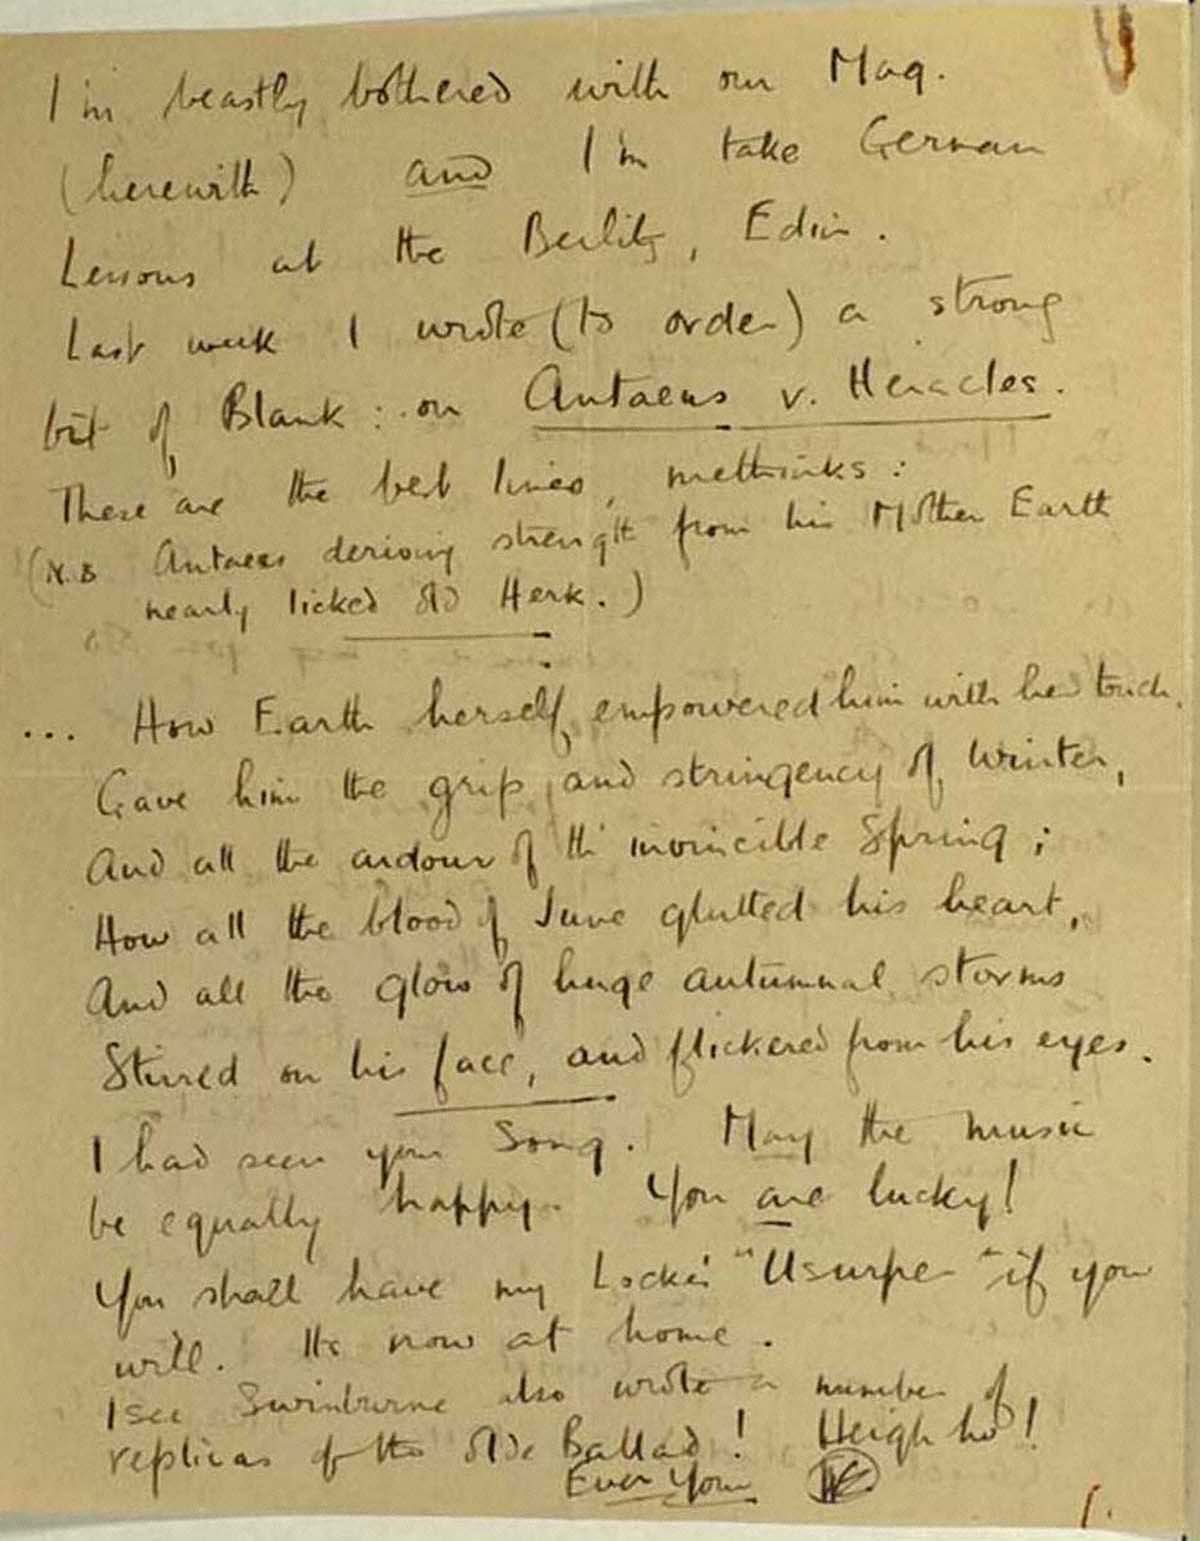 I'm beastly bothered with our Mag.
(herewith) and I'm take German
Lessons at the Berlitz, Edin.
Last week I wrote (to order) a strong
bit of Blank: on Antaeus v. Heracles.
These are the best lines, methinks:
(N.B Antaeus deriving strength from his Mother Earth
nearly licked old Herk.)
... How Earth herself empowered him with her touch,
Gave him the grip and stringency of Winter,
And all the ardour of th' invincible Spring;
How all the blood of June glutted his heart,
And all the glow of huge autumnal storms
Stirred on his face, and flickered from his eyes.
I had seen your Song. May the music
be equally happy. You are lucky!
You shall have my Locke's "Usurper" if you
will. Its now at home.
I see Swinburne also wrote a number of
replicas of the olde Ballad! Heigh ho!
Ever Yours